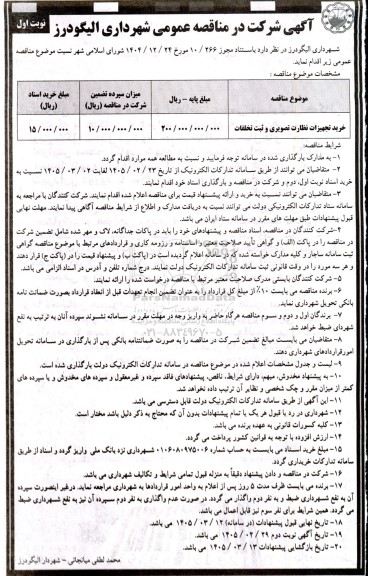 آگهی شرکت در مناقصه عمومی شهرداری الیگودرز
نوبت اول
شهرداری الیگودرز در نظر دارد باستناد مجوز ۲۶۶ / ۱۰ مورخ ۲۴ / ۱۲ / ۱۴۰۴ شورای اسلامی شهر نسبت موضوع مناقصه
عمومی زیر اقدام نماید.
مشخصات موضوع مناقصه :
موضوع مناقصه
مبلغ پایه – ریال
مبلغ سپرده تضمین شرکت در مناقصه (ریال)
مبلغ خرید اسناد (ریال)
خرید تجهیزات نظارت تصویری و ثبت تخلفات
۲۰۰ / ۰۰۰ / ۰۰۰ / ۰۰۰
۱۰ / ۰۰۰ / ۰۰۰ / ۰۰۰
۱۵ / ۰۰۰ / ۰۰۰
شرایط مناقصه:
۱- به مدارک بارگذاری شده در سامانه توجه فرمایید و نسبت به مطالعه همه موارد اقدام گردد.
۲- متقاضیان می توانند از طریق سامانه تدارکات الکترونیک از تاریخ ۲۳ / ۰۲ / ۱۴۰۵ لغایت ۰۲ / ۰۳ / ۱۴۰۵ نسبت به
خرید اسناد نوبت اول، دوم و شرکت در مناقصه و بارگذاری اسناد خود اقدام نمایند.
۳- متقاضیان می توانند نسبت به خرید و ارائه پیشنهاد قیمت برای مناقصه اعلام شده اقدام نمایند. شرکت کنندگان با مراجعه به
سامانه ستاد تدارکات الکترونیکی دولت می توانند نسبت به دریافت مدارک و اطلاع از شرایط مناقصه آگاهی پیدا نمایند. مهلت نهایی
قبول پیشنهادات طبق مهلت های مقرر در سامانه ستاد ایران می باشد.
۴- شرکت کنندگان در مناقصه، اسناد مناقصه و پیشنهادهای خود را باید در پاکات جداگانه، لاک و مهر شده شامل تضمین شرکت
در مناقصه را در پاکت (الف) و گواهی تأیید صلاحیت معتبر، اساسنامه و رزومه کاری و قراردادهای مرتبط با موضوع مناقصه گواهی
ثبت سامانه ساجار و کلیه مدارک خواسته شده که در سامانه اعلام گردیده است در (پاکت ب) و پیشنهاد قیمت را در (پاکت ج) قرار دهند
و هر سه مورد را در وقت قانونی ثبت سامانه تدارکات الکترونیک دولت نمایند. درج شماره تلفن و آدرس در اسناد الزامی می باشد.
۵- شرکت کنندگان بایستی مدرک صلاحیت معتبر مرتبط با مناقصه درخواست شده را ارائه نمایند.
۶- برنده مناقصه می بایست ۱۰٪ از مبلغ کل قرارداد را به عنوان تضمین انجام تعهدات قبل از انعقاد قرارداد بصورت ضمانت نامه
بانکی تحویل شهرداری نماید.
۷- برندگان اول و دوم و سوم مناقصه هرگاه حاضر به واریز وجه در مهلت مقرر در سامانه نشوند سپرده آنان به ترتیب به نفع
شهرداری ضبط خواهد شد.
۸- متقاضیان می بایست مبالغ تضمین شرکت در مناقصه را به صورت ضمانتنامه بانکی پس از بارگذاری در سامانه تحویل
امور قراردادهای شهرداری دهند.
۹- لیست و جدول مشخصات اعلام شده در موضوع مناقصه در سامانه تدارکات الکترونیک دولت بارگذاری شده است.
۱۰- به پیشنهاد مخدوش، مبهم، دارای شرایط، ناقص، پیشنهادهای فاقد سپرده و غیرمعقول و سپرده های مخدوش و یا سپرده های
کمتر از میزان مقرر و چک شخصی و نظایر آن ترتیب داده نخواهد شد.
۱۱- این آگهی از طریق سامانه تدارکات الکترونیک دولت قابل دسترسی می باشد.
۱۲- شهرداری در رد یا قبول هر یک یا تمام پیشنهادات بدون آن که محتاج به ذکر دلیل باشد مختار است.
۱۳- کلیه کسورات قانونی به عهده برنده می باشد.
۱۴- ارزش افزوده با توجه به قوانین کشور پرداخت می گردد.
۱۵- مبلغ خرید اسناد می بایست به حساب شماره ۰۱۰۶۰۸۰۹۷۵۰۰۶ شهرداری نزد بانک ملی واریز گردد و اسناد از طریق
سامانه تدارکات خریداری گردد.
۱۶- شرکت در مناقصه و دادن پیشنهاد دقیقاً به منزله قبول تمامی شرایط و تکالیف شهرداری می باشد.
۱۷- برنده می بایست ظرف مدت ۵ روز پس از اعلام به واحد امور قراردادها به شهرداری مراجعه نماید. درغیر اینصورت سپرده
آن به نفع شهرداری ضبط و به نفر دوم واگذار می گردد. در صورت عدم واگذاری به نفر دوم سپرده آن نیز به نفع شهرداری ضبط
می گردد. همین شرایط برای نفر سوم نیز قابل اعمال می باشد.
۱۸- تاریخ نهایی قبول پیشنهادات (در سامانه) ۱۲ / ۰۳ / ۱۴۰۵ می باشد.
۱۹- تاریخ آگهی نوبت دوم ۲۹ / ۰۲ / ۱۴۰۵ می باشد.
۲۰- تاریخ بازگشایی پیشنهادات ۱۳ / ۰۳ / ۱۴۰۵ می باشد.
محمد لطفی میانجائی – شهردار الیگودرز